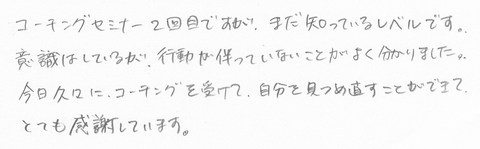 コーチングセミナー2回目ですが、まだ知っているレベルです。
意識はしているが、行動が伴っていないことがよく分かりました。
今日久々に、コーチングを受けて、自分を見つめ直すことができて、
とても感謝しています。